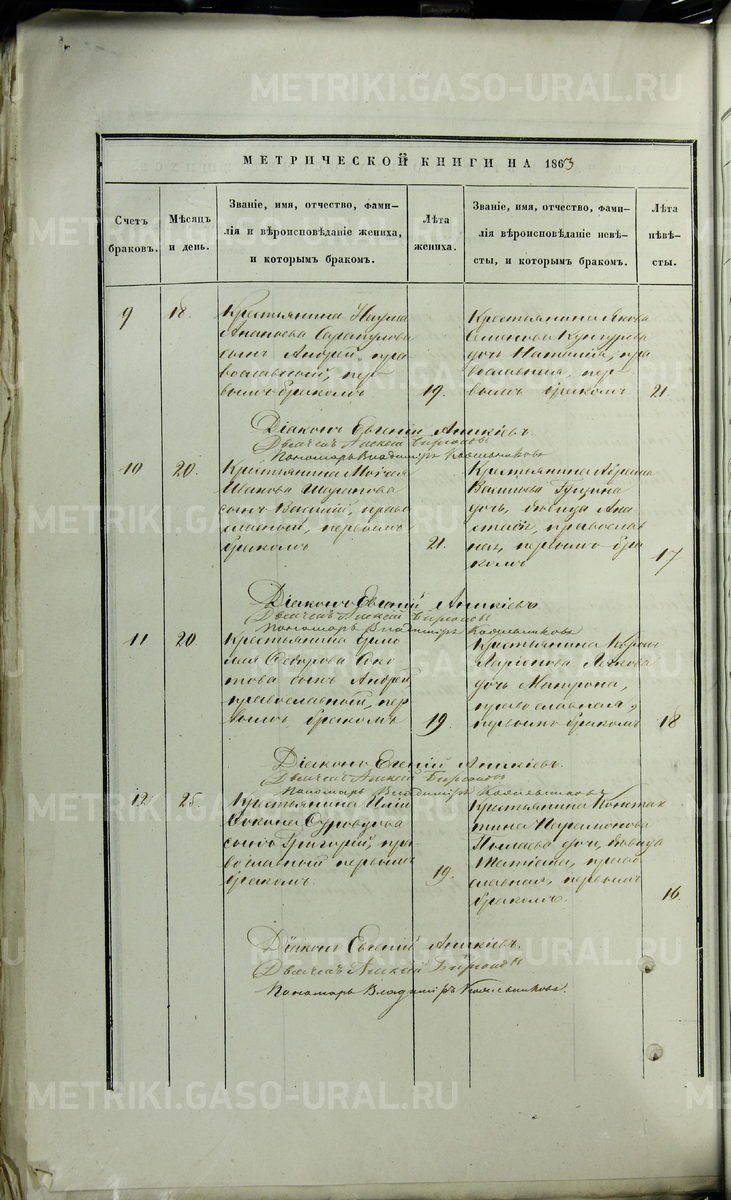 МЕТРИЧЕСКОЙ КНИГИ НА 1863
Счетъ браковъ.
Мѣсяцъ и день.
Званіе, имя, отчество, фами-
лія и вѣроисповѣданіе жениха,
и которымъ бракомъ.
Лѣта жениха.
Званіе, имя, отчество, фами-
лія вѣроисповѣданіе невѣ-
сты, и которымъ бракомъ.
Лѣта невѣ-
сты.
9
18.
Крестьянина Наума
сынъ Андрей, пра
вославный, пер-
вымъ бракомъ
19.
Крестьянина Якова
Семенова
дочь Наталія, пра
вославная, пер-
вымъ бракомъ
21.
Діаконъ Евгеній Аникіевъ.
Дьячекъ Алексѣй
Пономарь Владиміръ
10
20.
Крестьянина
Иванова
сынъ Василій, право
славный, первымъ
бракомъ
21.
Крестьянина
дочь, дѣвица Ана
стасія, православ
ная, первымъ бра
комъ
17
Діаконъ Евгеній Аникіевъ
Дьячекъ Алексѣй
Пономарь Владиміръ
11
20.
Крестьянина Ермо
лая Ѳедорова
сынъ Андрей,
православный, пер
вымъ бракомъ
19.
Крестьянина
Ларіонова
дочь Матрона,
православная,
первымъ бракомъ
18
Діаконъ Евгеній Аникіевъ.
Дьячекъ Алексѣй
Пономарь Владиміръ
12
25.
Крестьянина Иліи
сынъ Григорій, пра
вославный первымъ
бракомъ.
19.
Крестьянина Констан
тина Парамонова
дочь, дѣвица
Татіана, право
славная, первымъ
бракомъ.
16.
Діаконъ Евгеній Аникіевъ.
Дьячекъ Алексѣй
Пономарь Владиміръ
METRIKI.GASO-URAL.RU